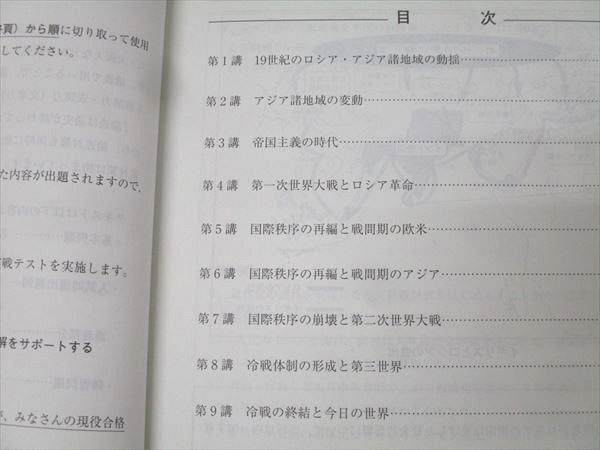 頁）から順に切り取って使用
してください。
た内容が出題されますので、
戦テストを実施します。
解をサポートする
が、みなさんの現役合格
目　次
第1講　19世紀のロシア・アジア諸地域の動揺
第2講　アジア諸地域の変動
第3講　帝国主義の時代
第4講　第一次世界大戦とロシア革命
第5講　国際秩序の再編と戦間期の欧米
第6講　国際秩序の再編と戦間期のアジア
第7講　国際秩序の崩壊と第二次世界大戦
第8講　冷戦体制の形成と第三世界
第9講　冷戦の終結と今日の世界